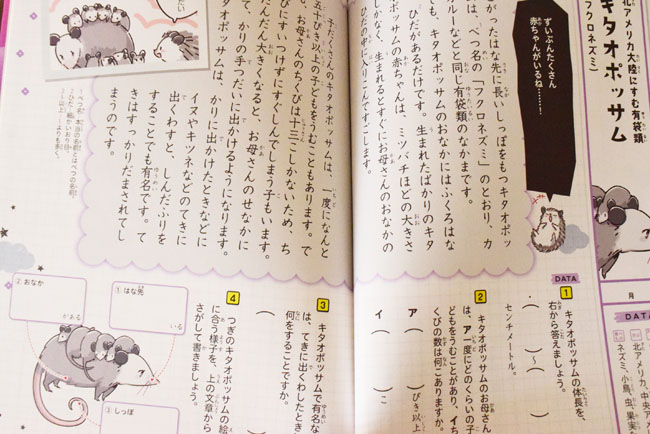 北アメリカ大陸にすむ有袋類
キタオポッサム
フクロネズミ)
月
DATA
北アメリカ
ネズミ、小鳥、虫、果実
ずいぶんたくさん
赤ちゃんがいるね……!
がったはな先に長いしっぽをもつキタオポッ
は、べつ名の「フクロネズミ」のとおり、カ
ガルーなどと同じ有袋類のなかまです。
も、キタオポッサムのおなかにはふくろはな
ひだがあるだけです。生まれたばかりのキタ
ポッサムの赤ちゃんは、ミツバチほどの大きさ
しかなく、生まれるとすぐにお母さんのおなかの
ひだの中に入りこんですごします。
子だくさんのキタオポッサムは、一度になんと
五十ぴき以上の子どもをうむこともあります。で
も、お母さんのちくびは十三こしかないため、ち
びにすいつけずにすぐしんでしまう子もいます。
だんだん大きくなると、お母さんのせなかに
て、かりの手つだいに出かけるようになります。
ポッサムは、かりに出かけたときなどに
イヌやキツネなどのてきに
出くわすと、しんだふりを
することでも有名です。て
きはすっかりだまされてし
まうのです。
DATA
1 キタオポッサムの体長を、
右から答えましょう。
( )〜( )
センチメートル。
2 キタオポッサムのお母さん
は、ア一度にどのくらいの子
どもをうむことがあり、イち
くびの数は何こありますか。
ア( )ぴき以上
イ( )こ
3 キタオポッサムで有名な
は、てきに出くわしたとき
何をすることですか。
( )
4 つぎのキタオポッサムの絵
に合う様子を、上の文章から
さがして書きましょう。
① はな先
いる
② おなか
がある
③ しっぽ